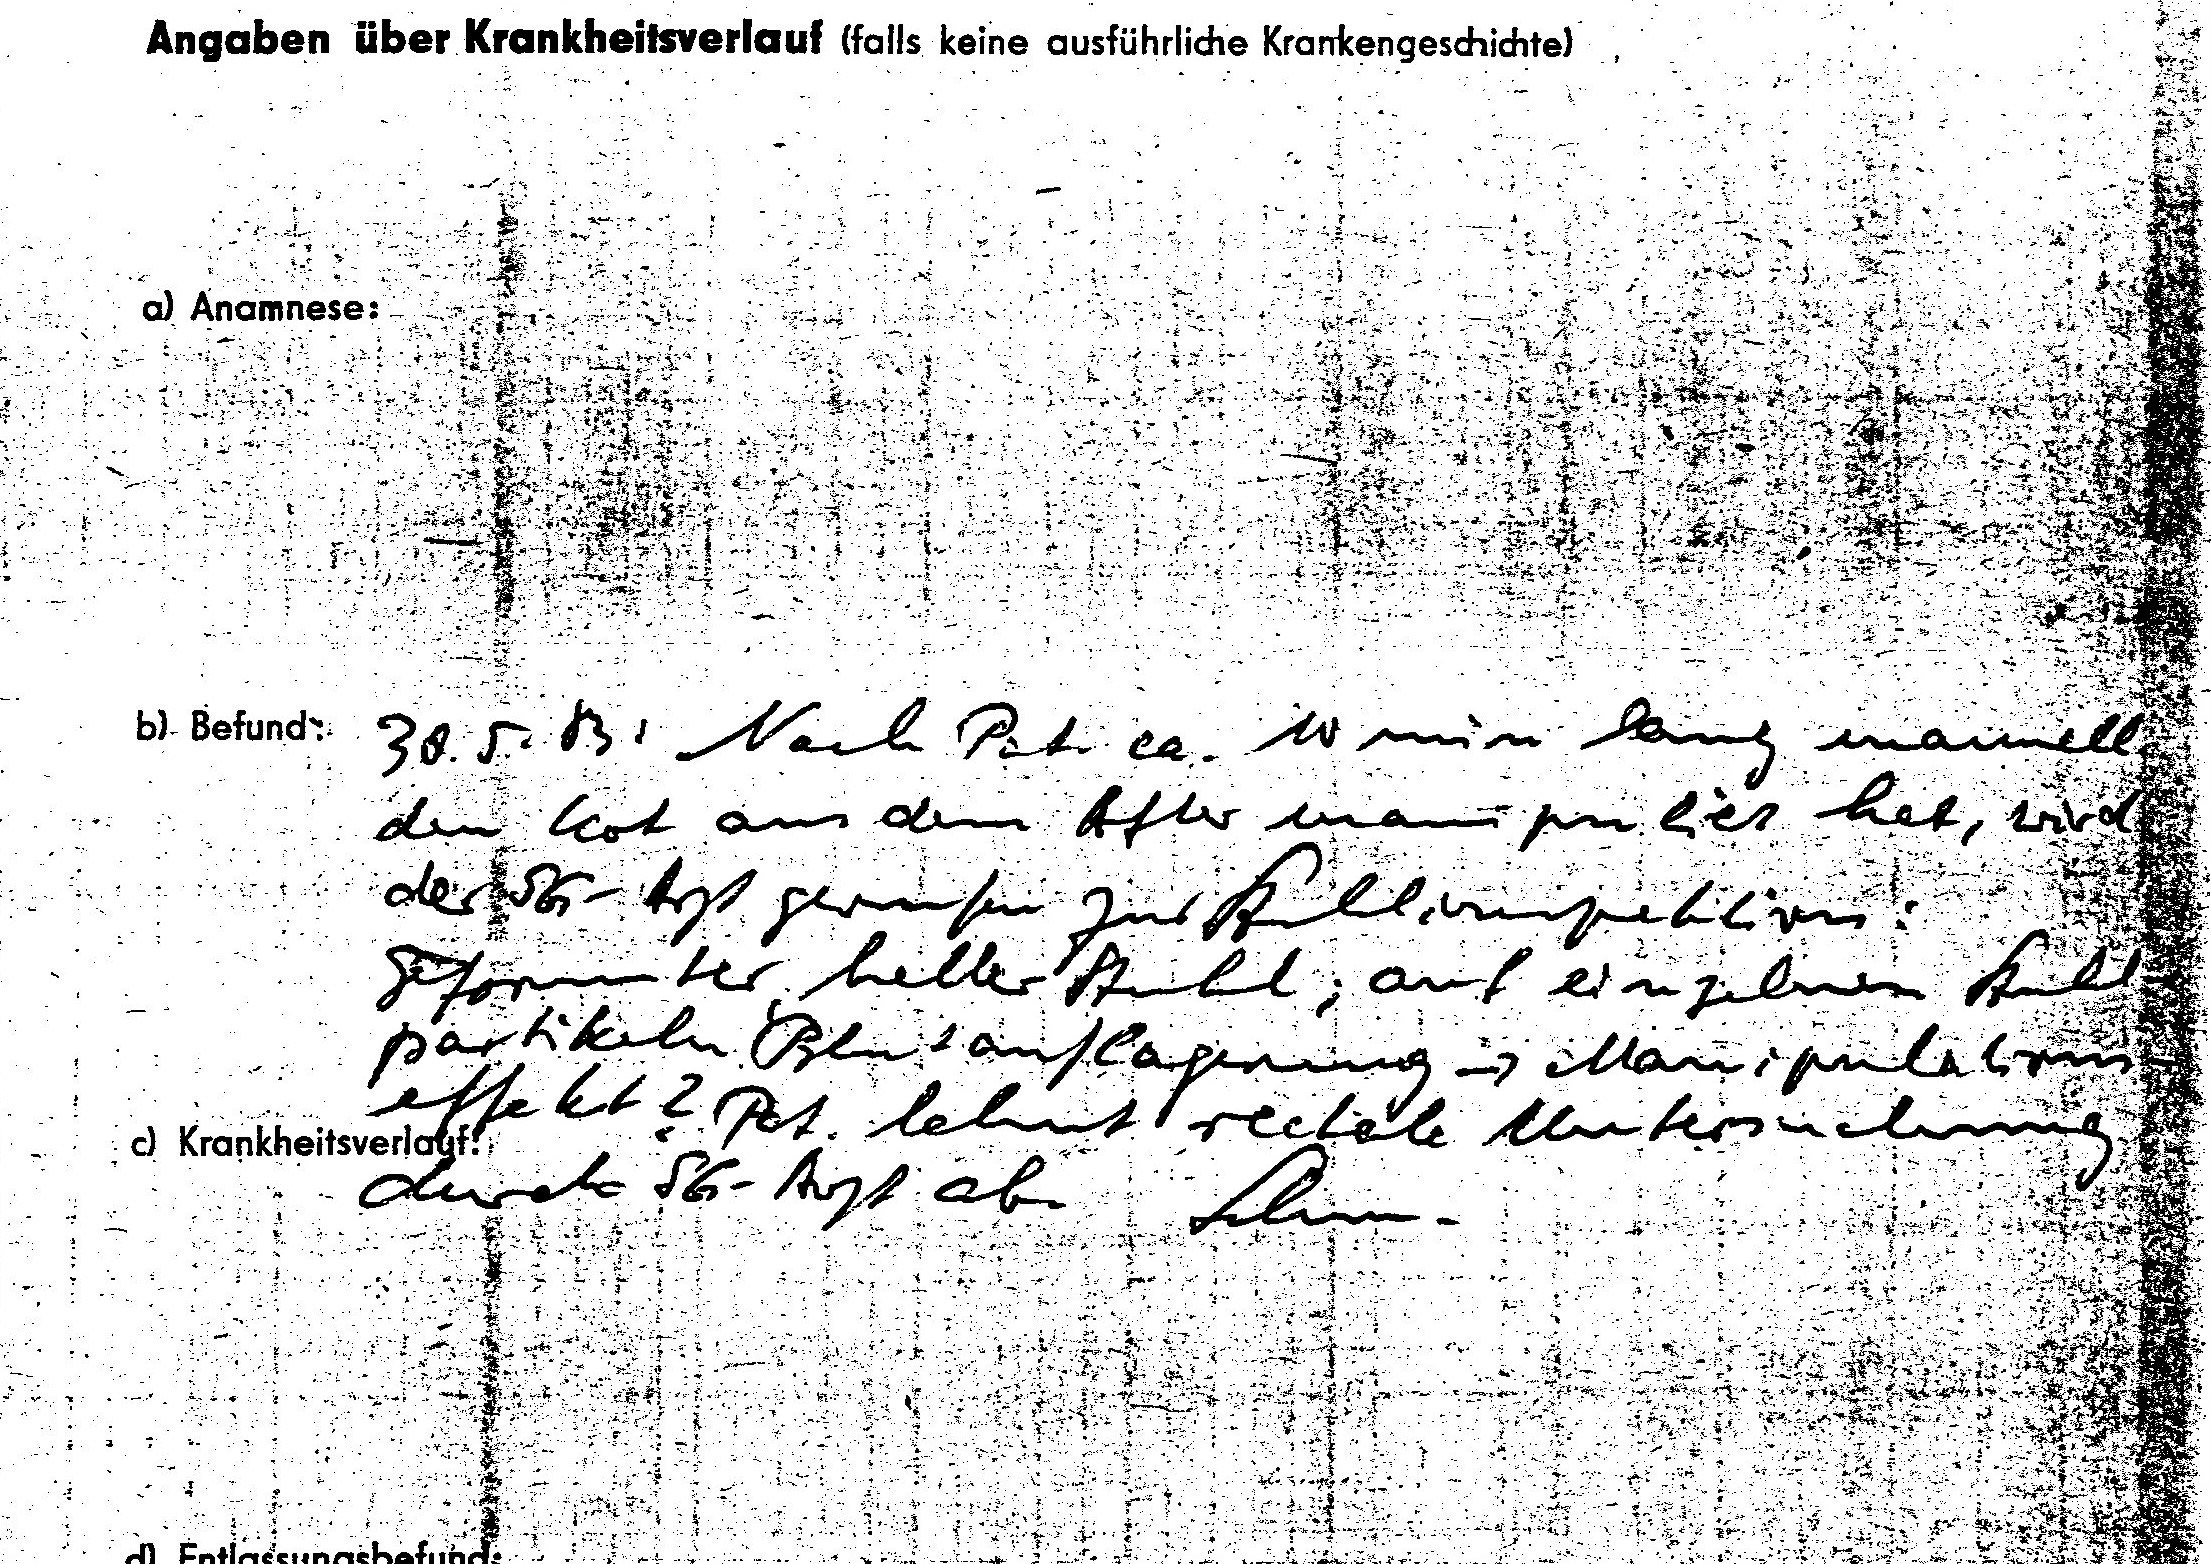 Angaben über Krankheitsverlauf (falls keine ausführliche Krankengeschichte)
a) Anamnese:
b) Befund: 30.5.83: Nach Pat. ca. 10 min lang manuell
den Kot aus dem After manipuliert hat, wird
der SG-Arzt gerufen zur Stuhlinspektion:
Geformter heller Stuhl; auf einzelnen Stuhl-
partikeln Blutauflagerung → Manipulations-
effekt? Pat. lehnt rectale Untersuchung
c) Krankheitsverlauf:
durch SG-Arzt ab.
d) Entlassungsbefund: